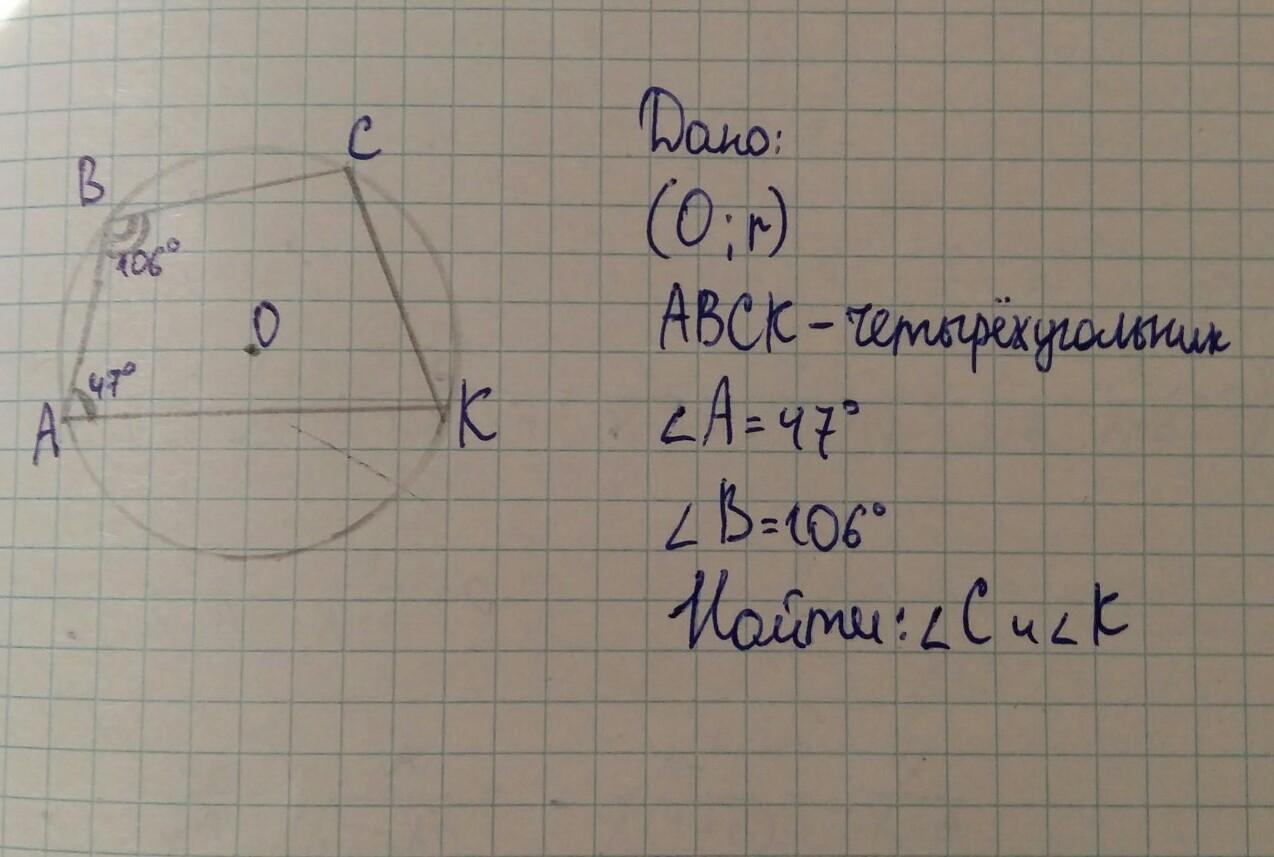 C
B
106°
O
47°
A
K
Дано:
(O;r)
ABCK - четырёхугольник
∠A=47°
∠B=106°
Найти: ∠C и ∠K